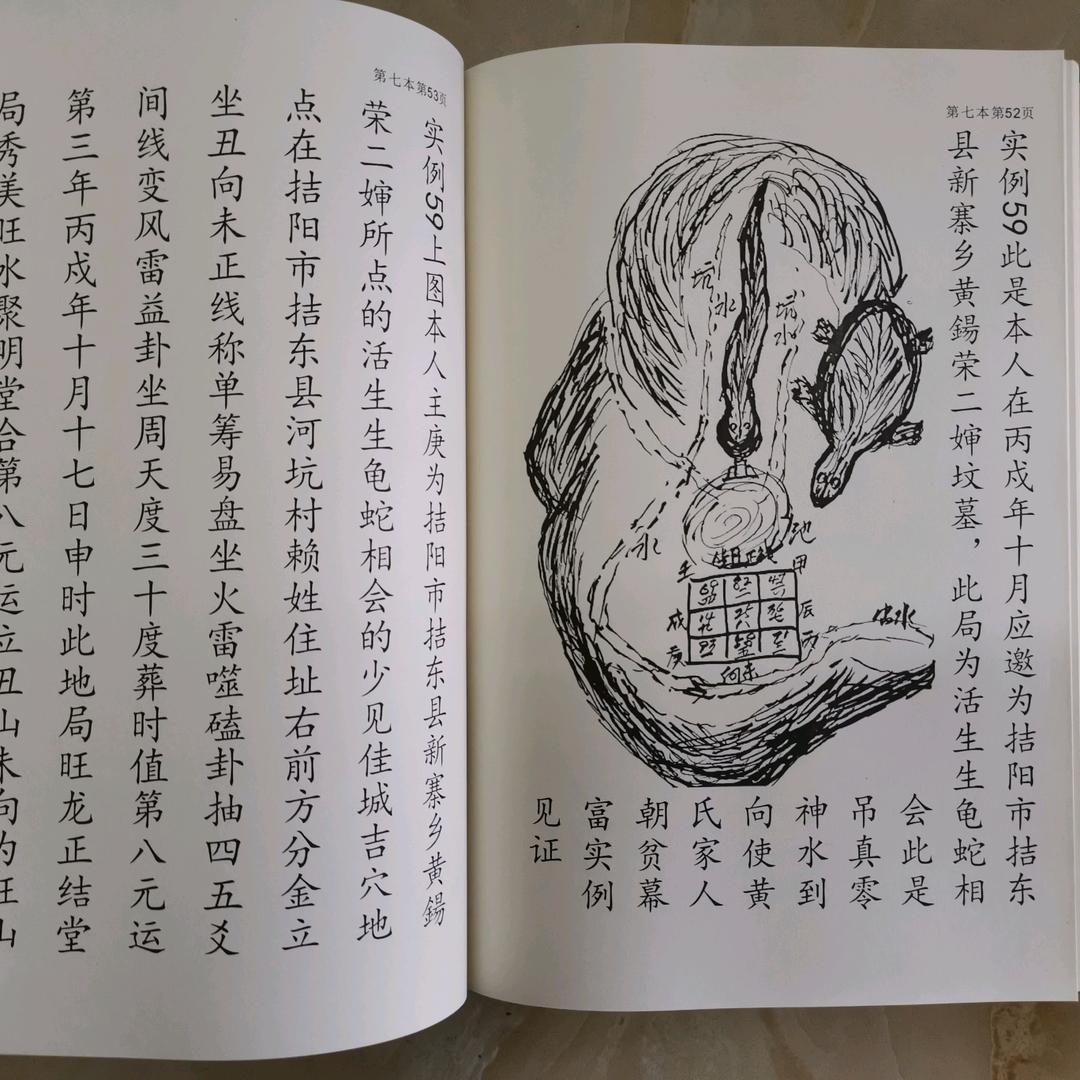 第七本第52页
实例59此是本人在丙戍年十月应邀为拮阳市拮东
县新寨乡黄鍚荣二婶坟墓，此局为活生生龟蛇相
会此是
吊真零
神水到
向使黄
氏家人
朝贫幕
富实例
见证
坑水
坑水
水
池
甲
壬
辰
戍
丙
庚
第七本第53页
实例59上图本人主庚为拮阳市拮东县新寨乡黄鍚
荣二婶所点的活生生龟蛇相会的少见佳城吉穴地
点在拮阳市拮东县河坑村赖姓住址右前方分金立
坐丑向未正线称单筹易盘坐火雷噬磕卦抽四五爻
间线变风雷益卦坐周天度三十度葬时值第八元运
第三年丙戍年十月十七日申时此地局旺龙正结堂
局秀美旺水聚明堂合第八元运立丑山未向为旺山